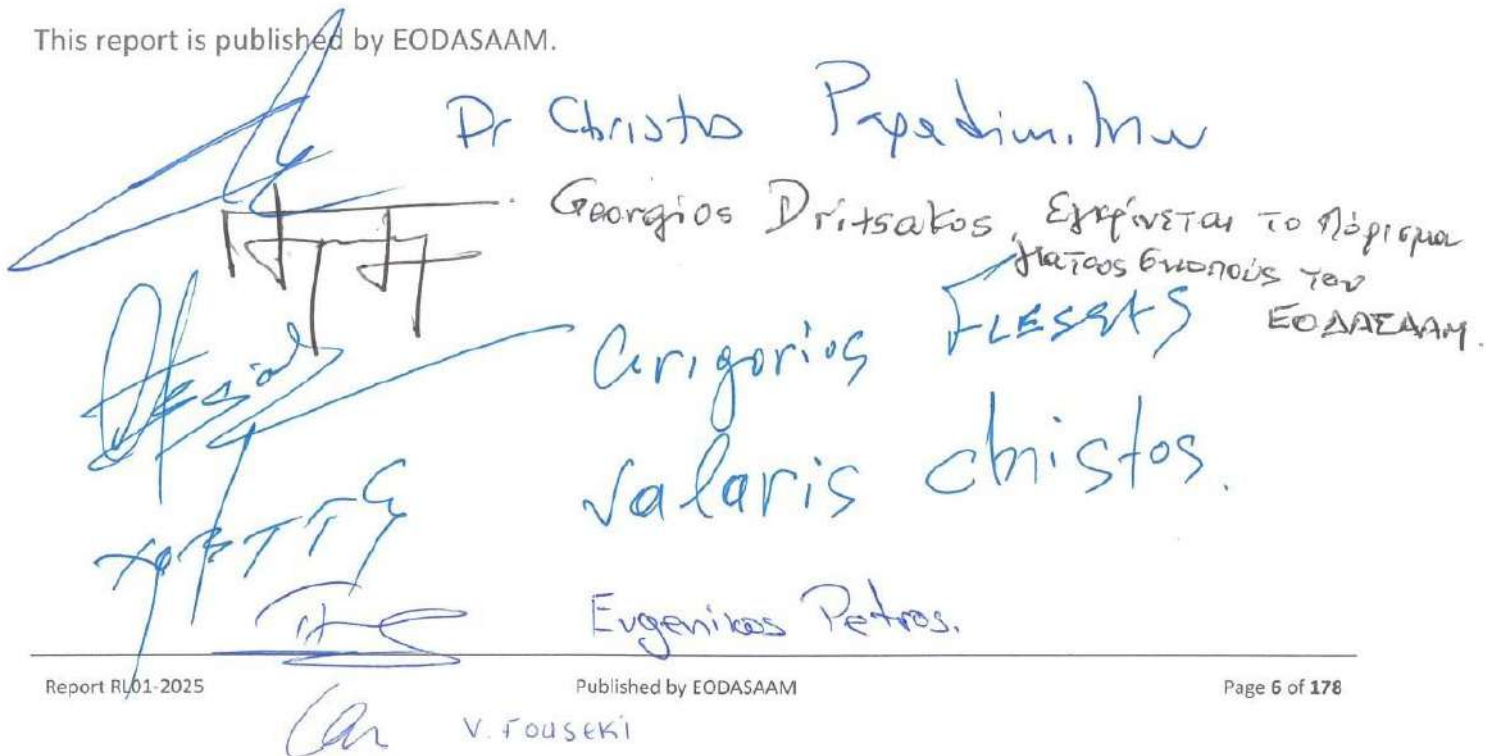 This report is published by EODASAAM.
Dr Christos Papadimitriou
Georgios Dritsakos, Εγκρίνεται το Πόρισμα
για τους σκοπούς του
ΕΟΔΑΣΑΑΜ.
Grigorios FLESSAS
Valaris christos.
Evgenikos Petros.
Report RL01-2025 Published by EODASAAM Page 6 of 178